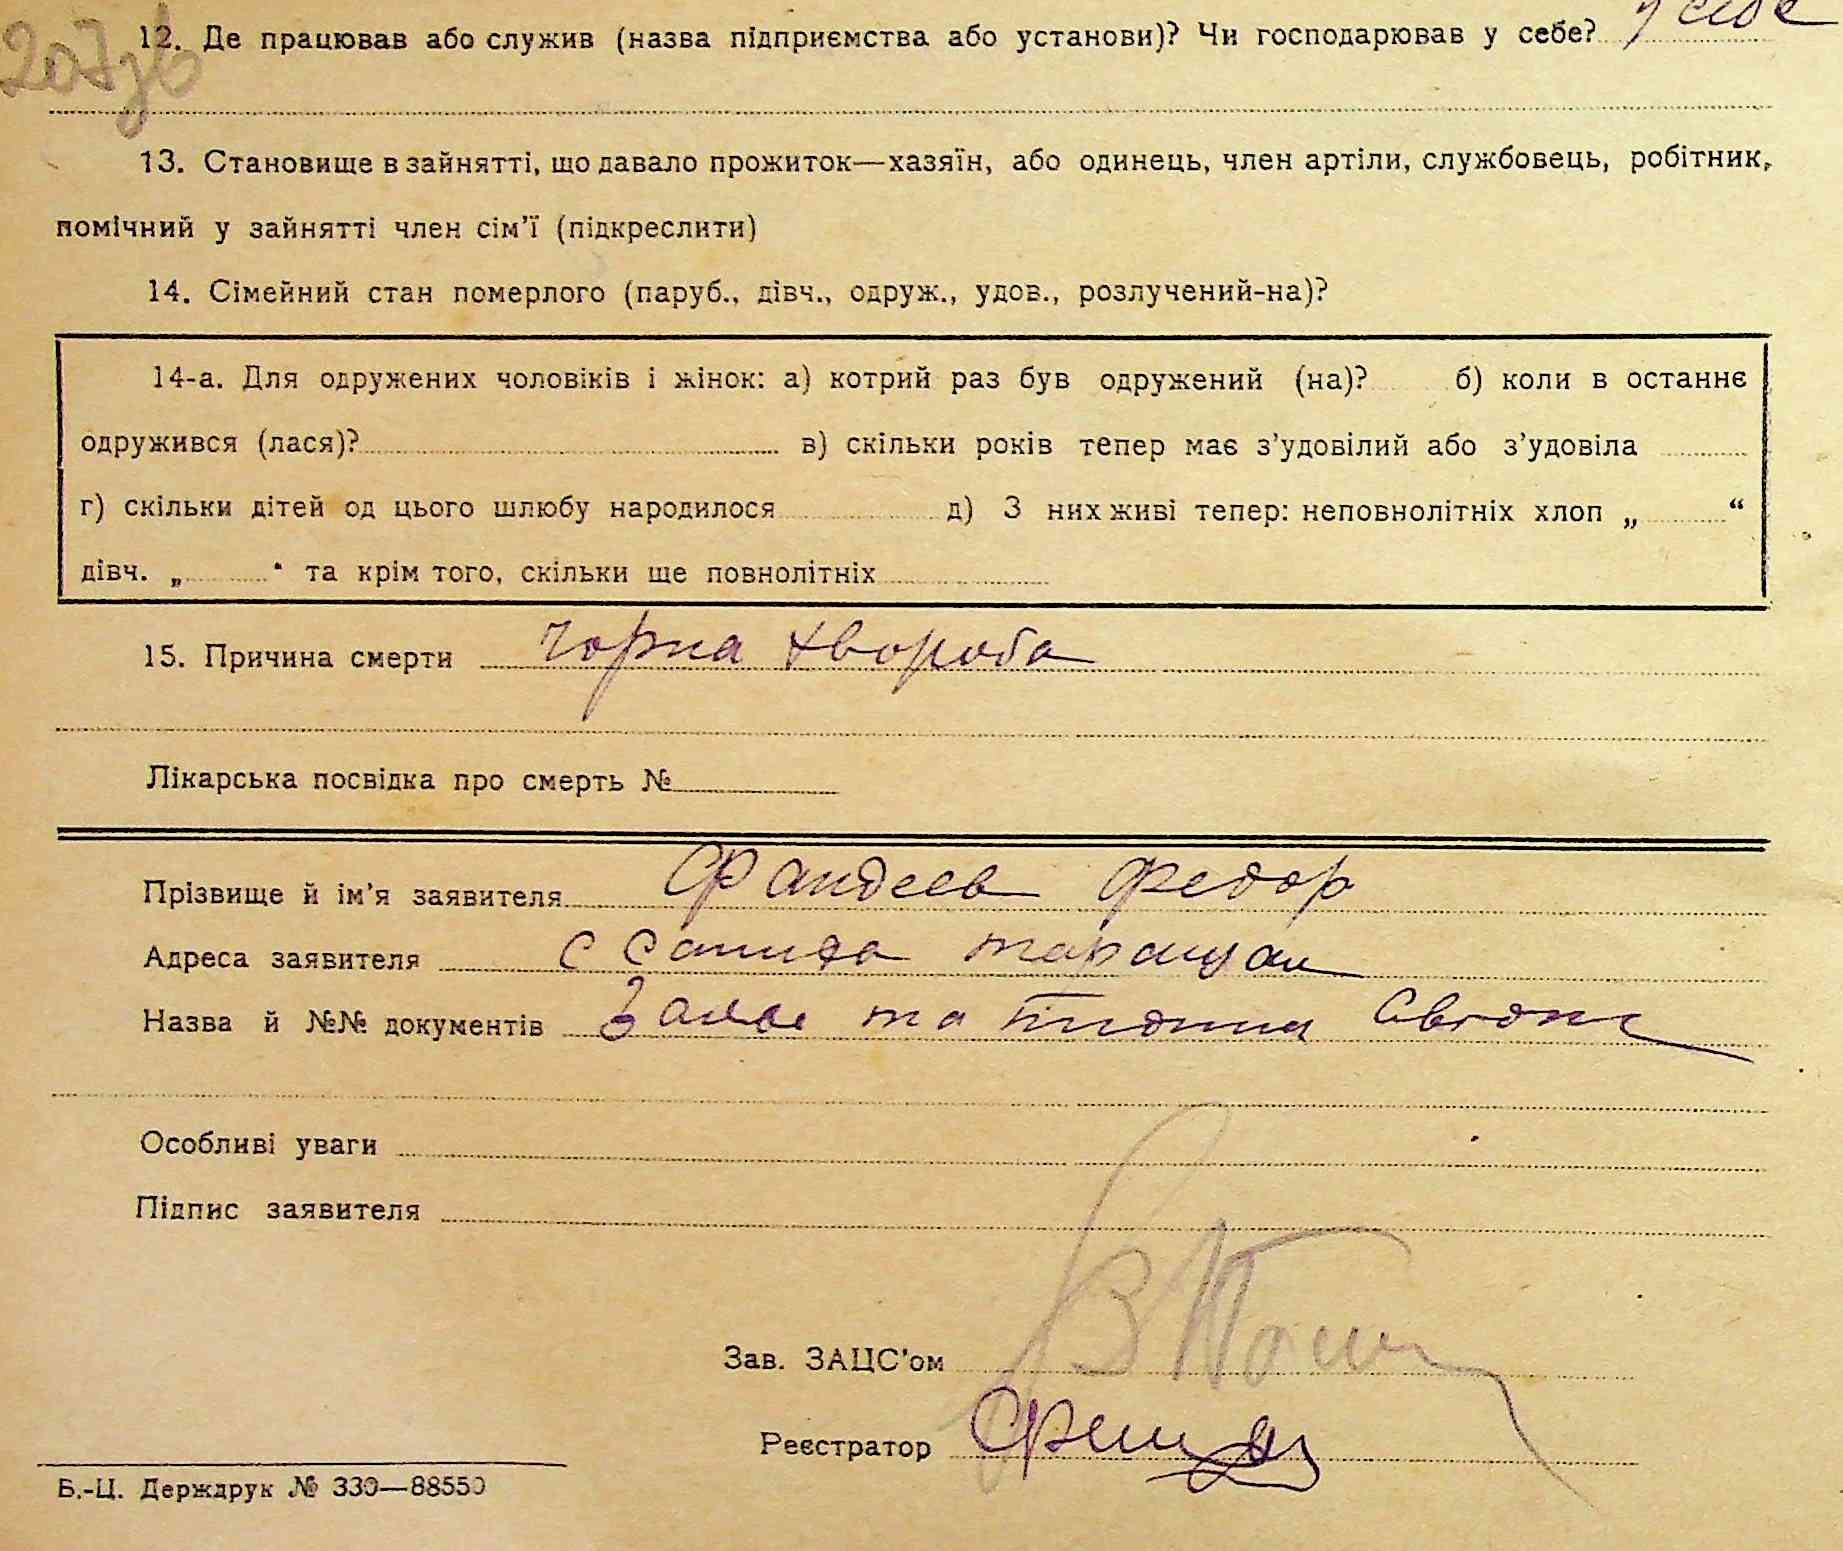 207зв
12. Де працював або служив (назва підприємства або установи)? Чи господарював у себе? у себе
13. Становище в зайнятті, що давало прожиток—хазяїн, або одинець, член артіли, службовець, робітник,
помічний у зайнятті член сім'ї (підкреслити)
14. Сімейний стан померлого (паруб., дівч., одруж., удов., розлучений-на)?
14-а. Для одружених чоловіків і жінок: а) котрий раз був одружений (на)? б) коли в останнє
одружився (лася)? в) скільки років тепер має з'удовілий або з'удовіла
г) скільки дітей од цього шлюбу народилося д) З них живі тепер: неповнолітніх хлоп „ “
дівч. „ “ та крім того, скільки ще повнолітніх
15. Причина смерти чорна хвороба
Лікарська посвідка про смерть №
Прізвище й ім'я заявителя Фандеєв Федор
Адреса заявителя с
Назва й №№ документів та
Особливі уваги
Підпис заявителя
Зав. ЗАЦС'ом
Реєстратор
Б.-Ц. Держдрук № 330—88550